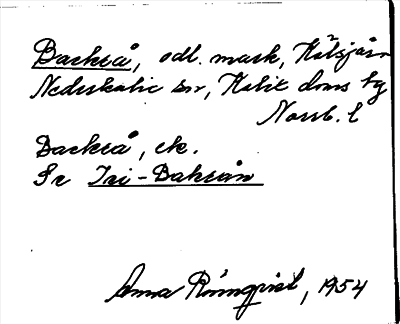 Backså, odl. mark, Hålsjärv
Nederkalix sn, Kalix doms bg
Norrb. l
Backså, ek.
Se Tri-Baksån
Anna Rönnqvist, 1954